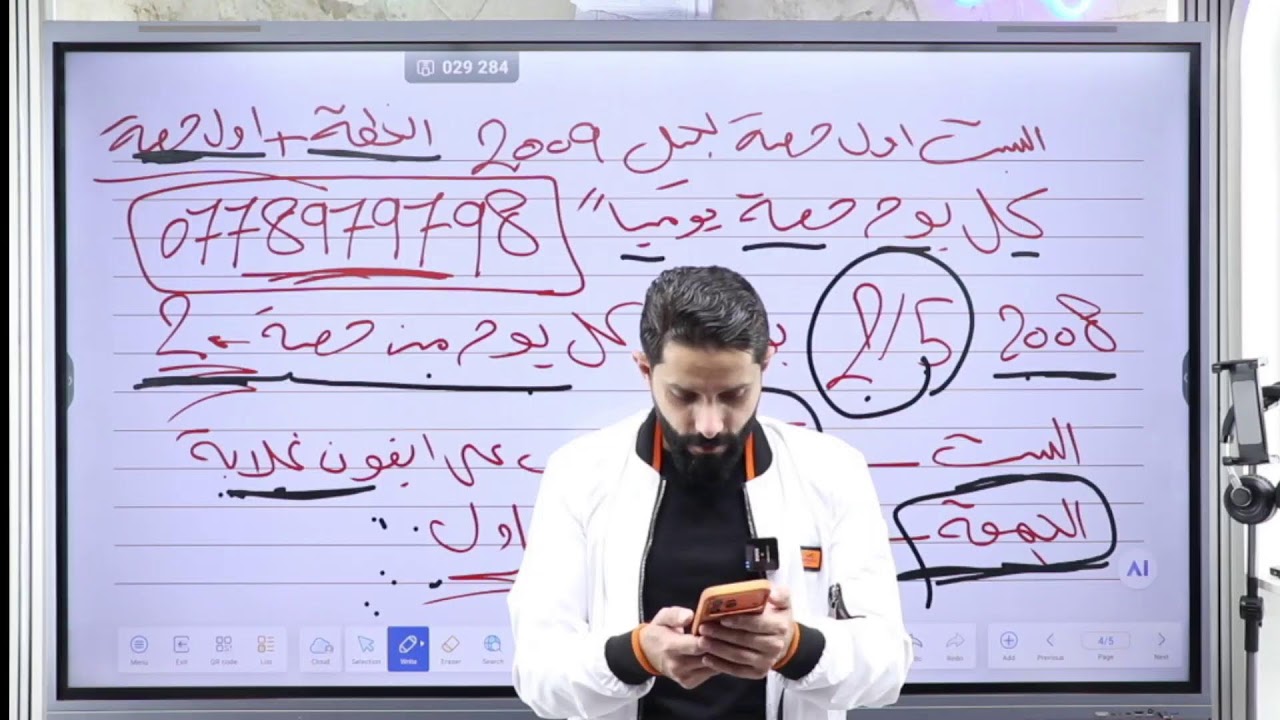 029 284
الست اول حصة لجيل 2009 الخطة + اول حصة
كل يوم حصة يوميا"
0778979798
2008 2/5 كل يوم من حصة - 2
الست على ايفون غلابة
الجمعة اول
AI
Menu Exit QR code List Cloud Selection Write Eraser Search Redo Add Previous 4/5 Page Next